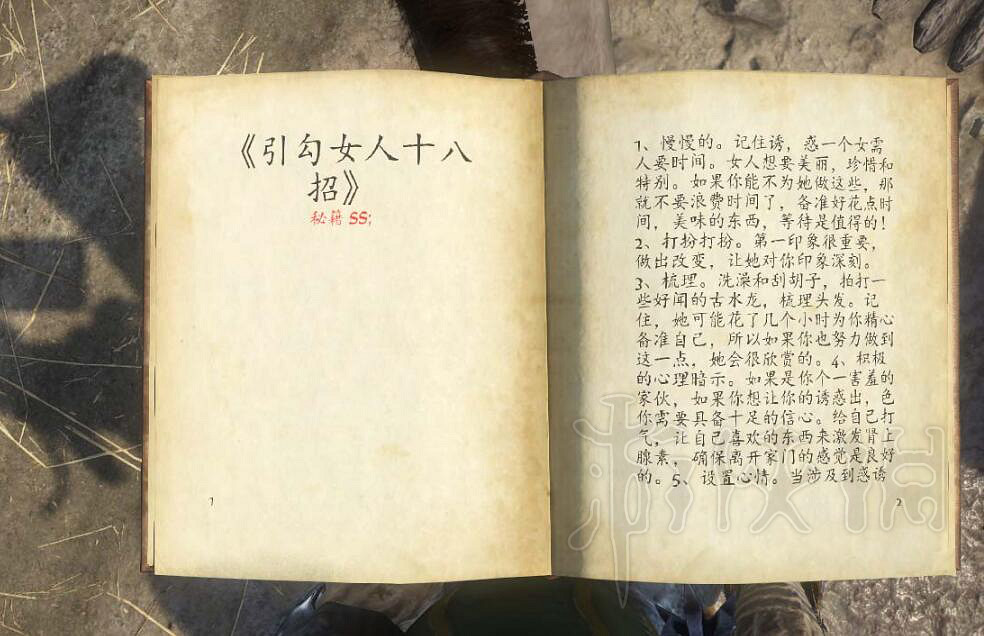 《引勾女人十八
招》
秘籍 SS;
1
1、慢慢的。记住诱，惑一个女需
人要时间。女人想要美丽，珍惜和
特别。如果你能不为她做这些，那
就不要浪费时间了，备准好花点时
间，美味的东西，等待是值得的！
2、打扮打扮。第一印象很重要，
做出改变，让她对你印象深刻。
3、梳理。洗澡和刮胡子，拍打一
些好闻的古水龙，梳理头发。记
住，她可能花了几个小时为你精心
备准自己，所以如果你也努力做到
这一点，她会很欣赏的。4、积极
的心理暗示。如果是你个一害羞的
家伙，如果你想让你的诱惑出，色
你需要具备十足的信心。给自己打
气，让自己喜欢的东西来激发肾上
腺素，确保离开家门的感觉是良好
的。5、设置心情。当涉及到惑诱
2
游侠网